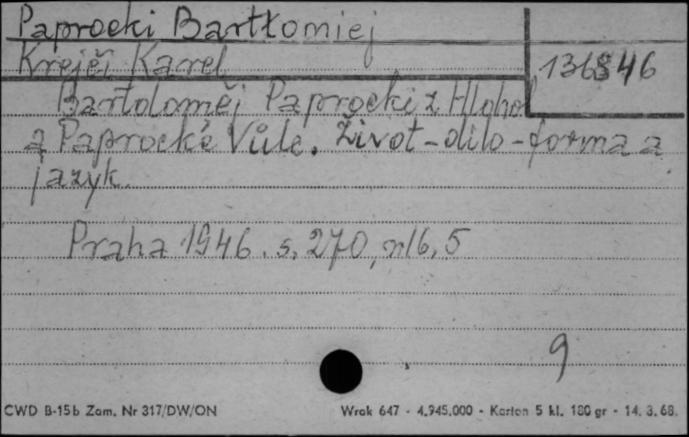 Paprocki Bartłomiej
Krejčí Karel
136846
Bartoloměj Paprocki z Hlohol
a Paprocké Vůle. Život-dilo-forma a
jazyk.
Praha 1946. s. 270, nlb, 5
9
CWD B-15b Zam. Nr 317/DW/ON
Wrak 647 - 4.945.000 - Karton 5 kl. 180 gr - 14. 3. 68.